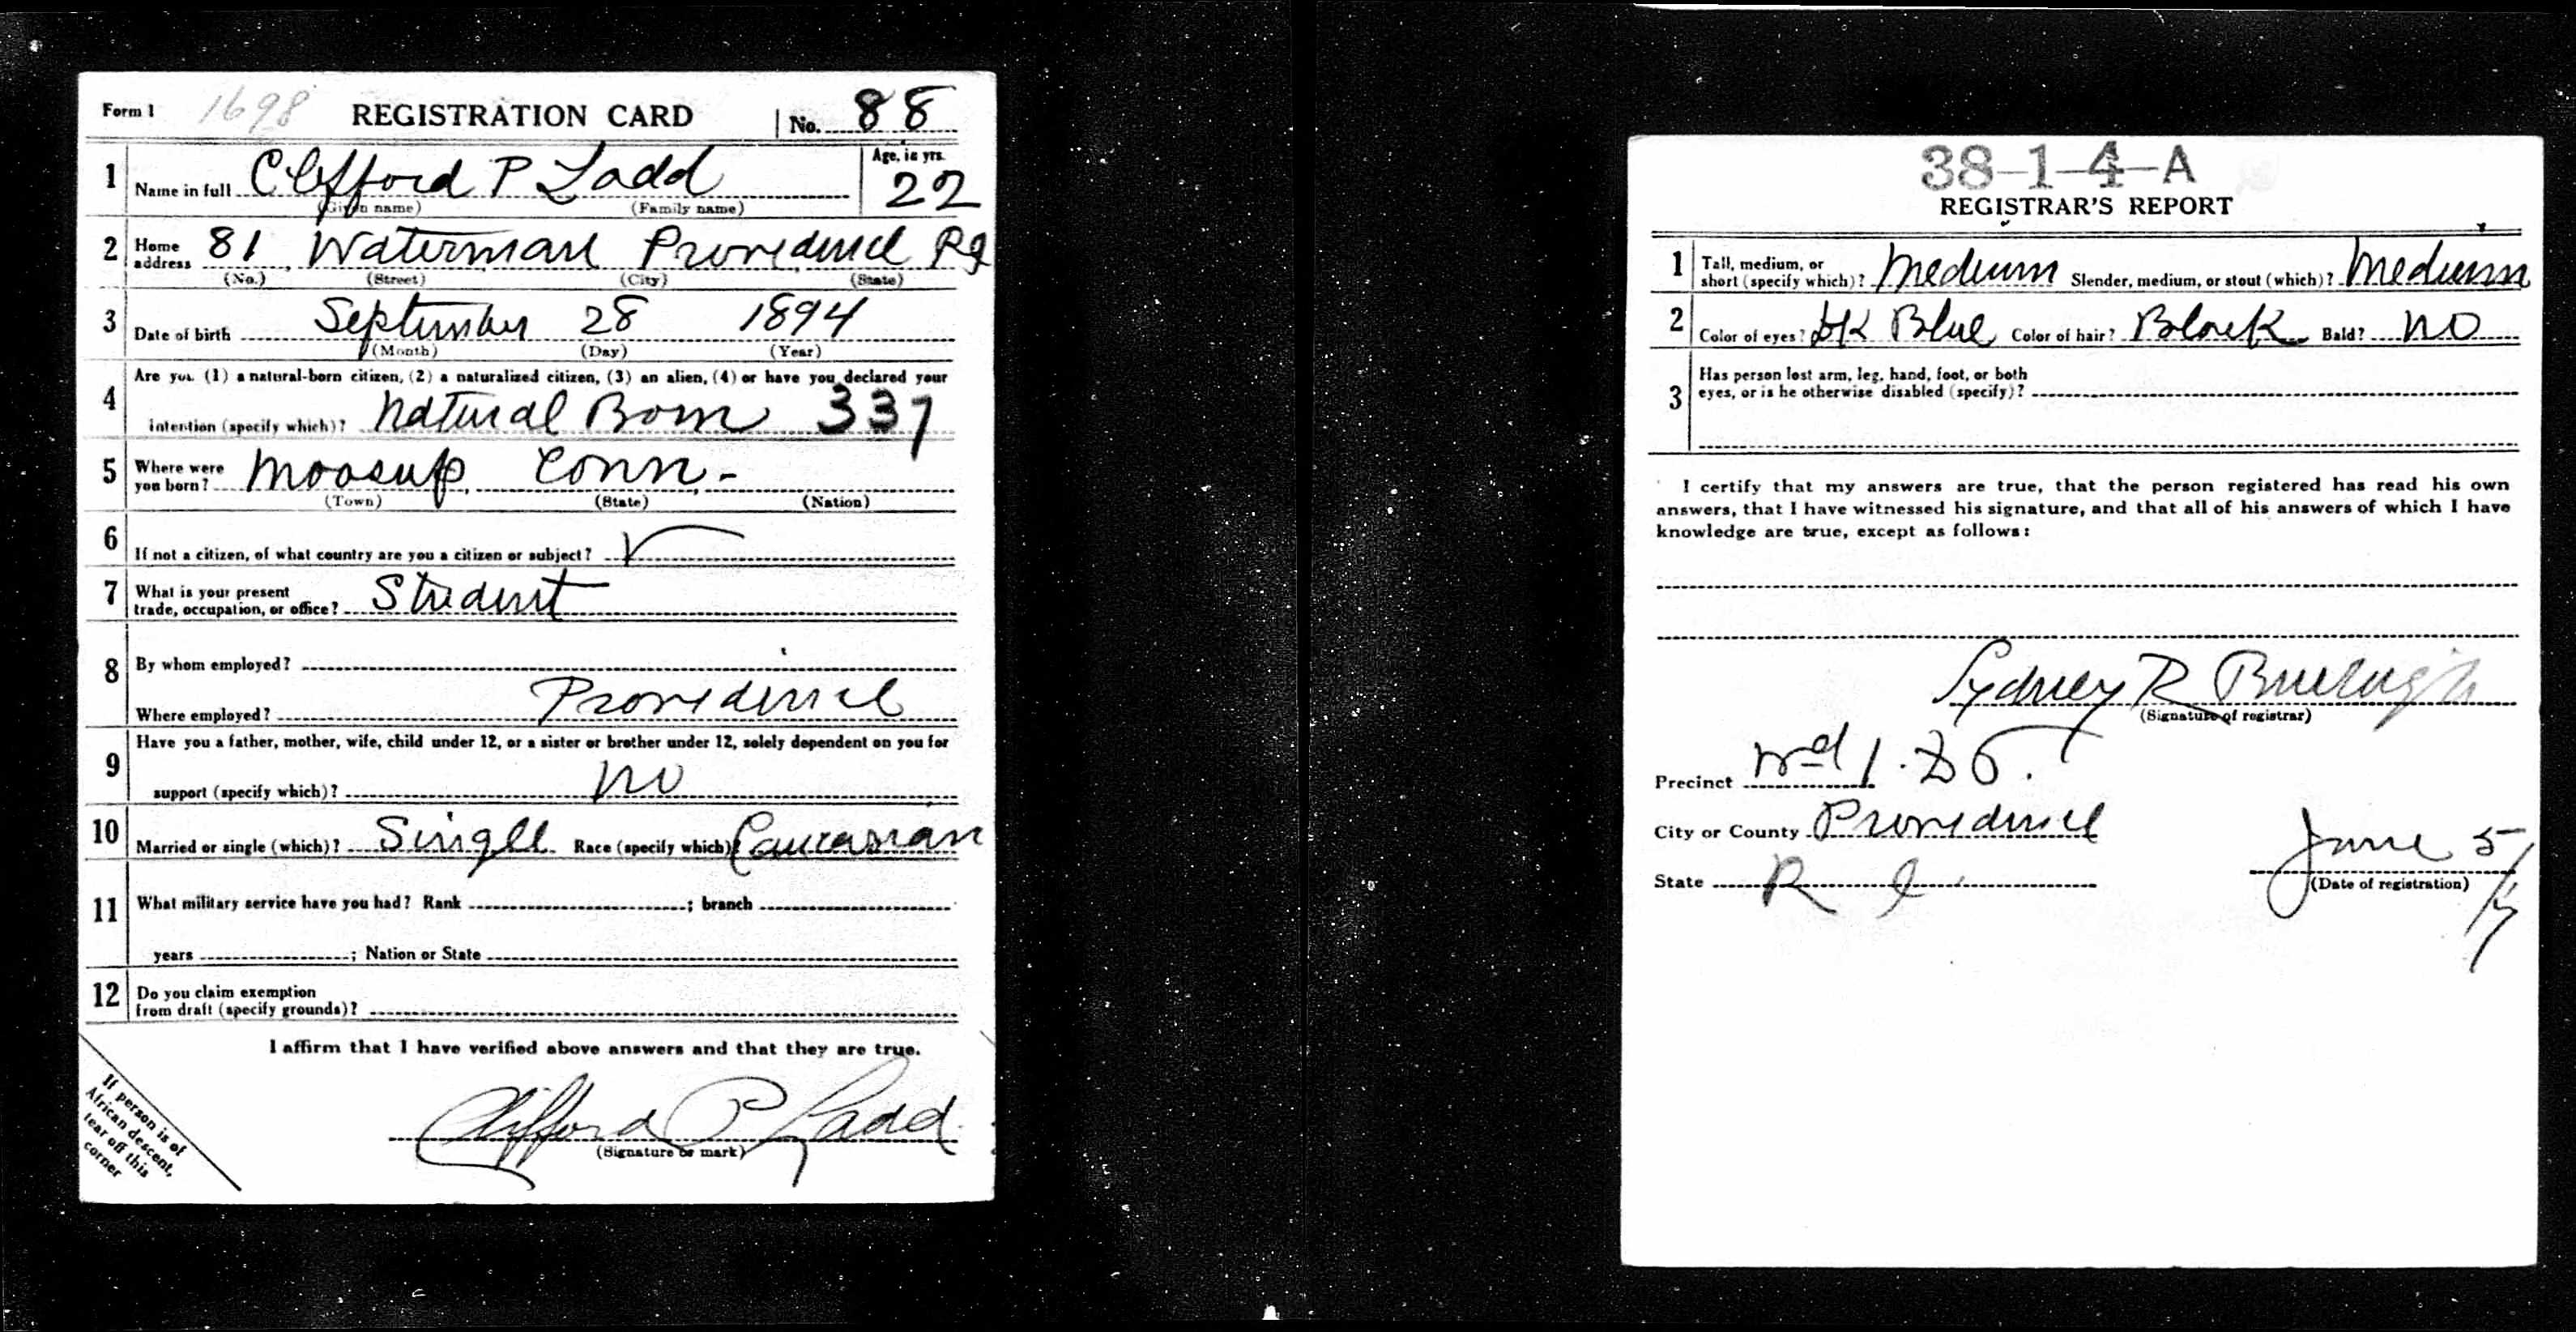 Form 1 1698 REGISTRATION CARD No. 88
1 Name in full Clifford P Ladd Age, in yrs. 22
(Given name) (Family name)
2 Home address 81 Waterman Providence RI
(No.) (Street) (City) (State)
3 Date of birth September 28 1894
(Month) (Day) (Year)
4 Are you (1) a natural-born citizen, (2) a naturalized citizen, (3) an alien, (4) or have you declared your
intention (specify which)? Natural Born 337
5 Where were you born? Moosup Conn -
(Town) (State) (Nation)
6 If not a citizen, of what country are you a citizen or subject? ✓
7 What is your present
trade, occupation, or office? Student
8 By whom employed?
Where employed? Providence
9 Have you a father, mother, wife, child under 12, or a sister or brother under 12, solely dependent on you for
support (specify which)? no
10 Married or single (which)? Single Race (specify which)? Caucasian
11 What military service have you had? Rank ; branch
years ; Nation or State
12 Do you claim exemption
from draft (specify grounds)?
I affirm that I have verified above answers and that they are true.
Clifford P Ladd
(Signature or mark)
If person is of
African descent,
tear off this
corner
38-1-4-A
REGISTRAR'S REPORT
1 Tall, medium, or
short (specify which)? Medium Slender, medium, or stout (which)? Medium
2 Color of eyes? dk Blue Color of hair? Black Bald? no
3 Has person lost arm, leg, hand, foot, or both
eyes, or is he otherwise disabled (specify)?
I certify that my answers are true, that the person registered has read his own
answers, that I have witnessed his signature, and that all of his answers of which I have
knowledge are true, except as follows:
Sydney R Burleigh
(Signature of registrar)
Precinct Wd 1.
City or County Providence
State R I June 5/17
(Date of registration)